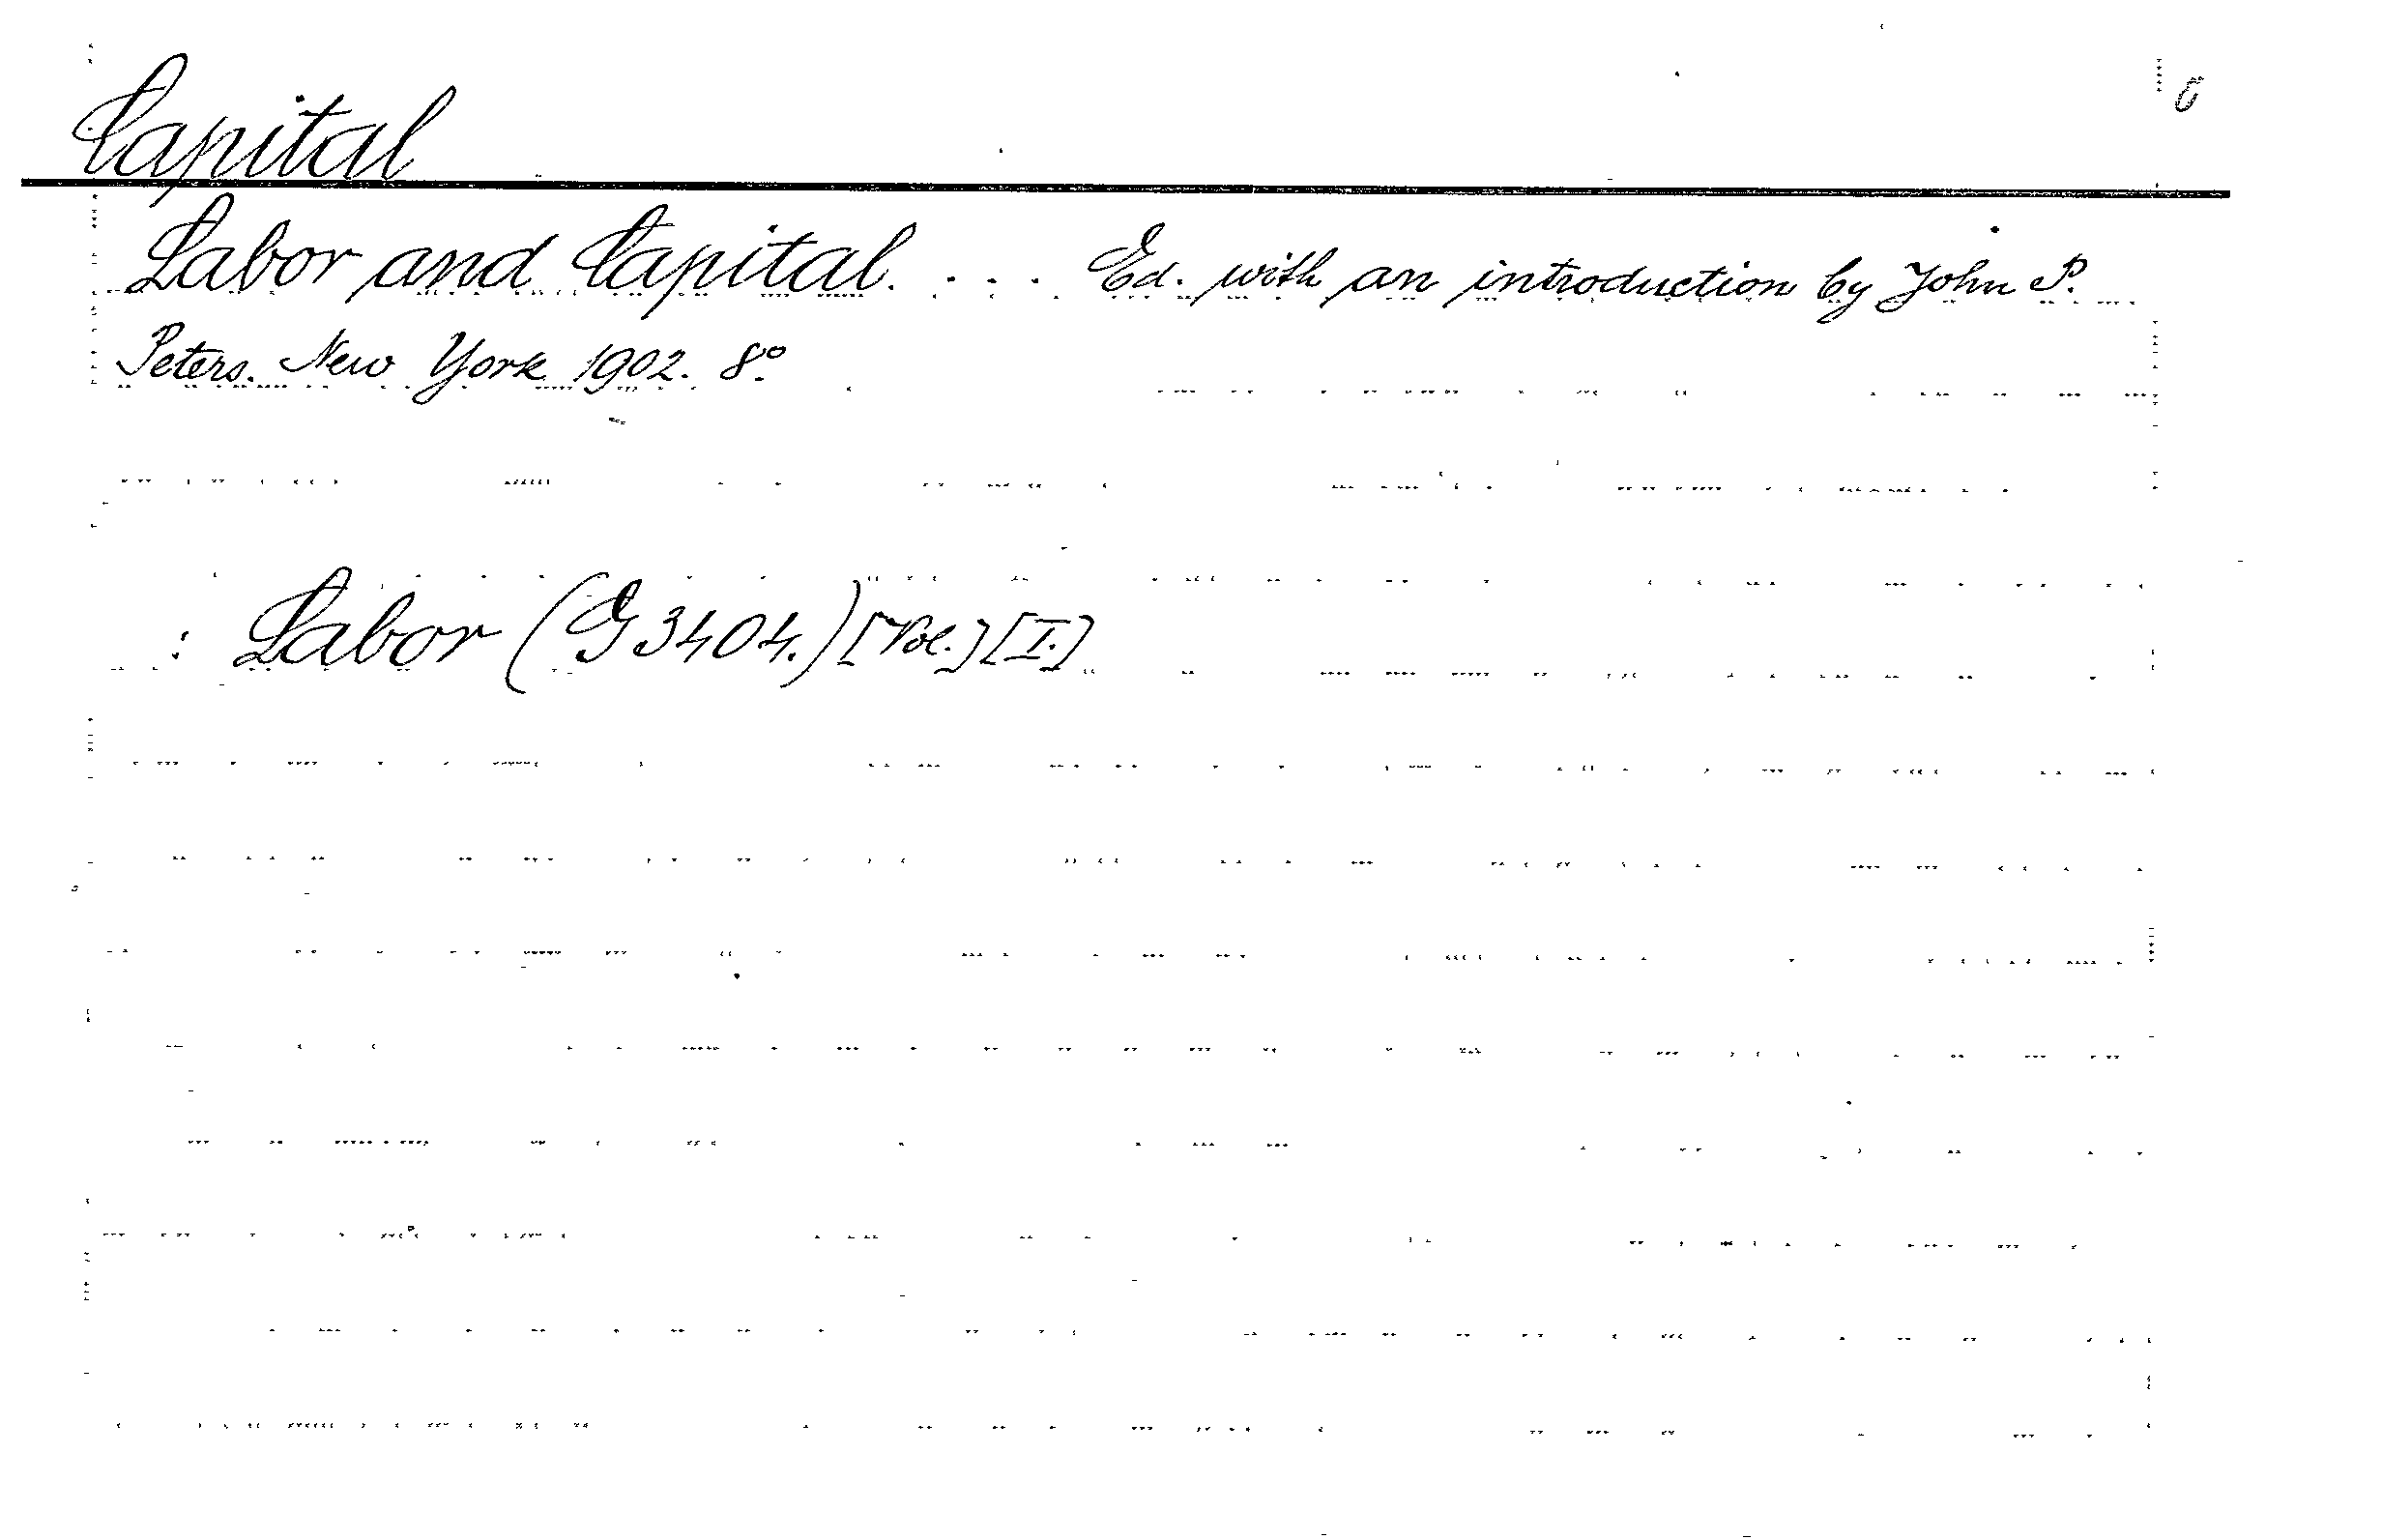 Capital
Labor and Capital. . . . Ed. with an introduction by John P.
Peters. New York 1902. 8°
: Labor (G 3404.) [Vol.] [I.]